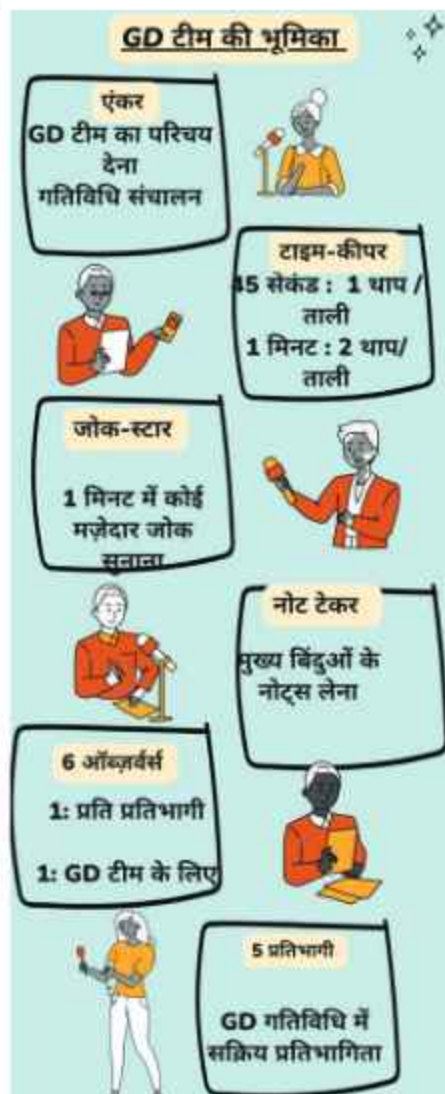 GD टीम की भूमिका
एंकर
GD टीम का परिचय
देना
गतिविधि संचालन
टाइम-कीपर
45 सेकंड : 1 थाप /
ताली
1 मिनट : 2 थाप/
ताली
जोक-स्टार
1 मिनट में कोई
मज़ेदार जोक
सुनाना
नोट टेकर
मुख्य बिंदुओं के
नोट्स लेना
6 ऑब्ज़र्वर्स
1: प्रति प्रतिभागी
1: GD टीम के लिए
5 प्रतिभागी
GD गतिविधि में
सक्रिय प्रतिभागिता